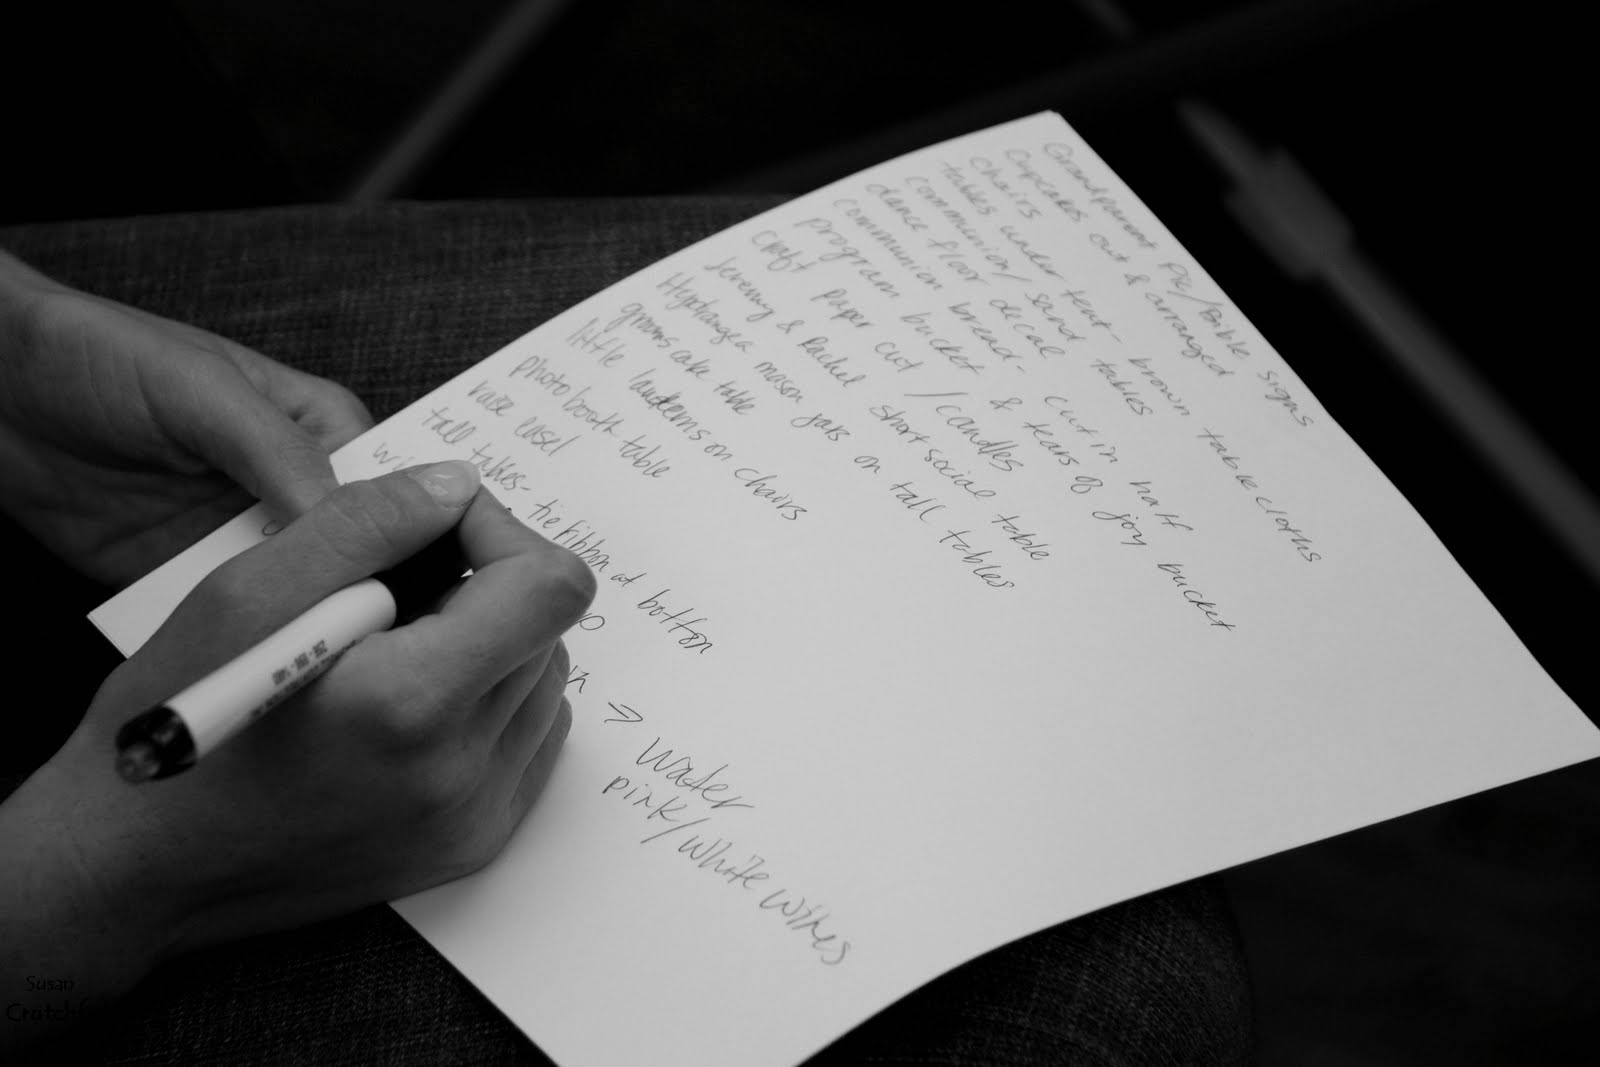 Grandparent Pic/Bible signs
cupcakes out & arranged
chairs
tables under tent - brown table cloths
communion/sand tables
dance floor decal
communion bread - cut in half
program bucket & tears of joy bucket
craft paper cut/candles
Jeremy & Rachel short social table
Hydrangea mason jars on tall tables
grooms cake table
little lanterns on chairs
photo booth table
raise easel
tall tables - tie ribbon at bottom
⇒ water
pink/white wines
Susan